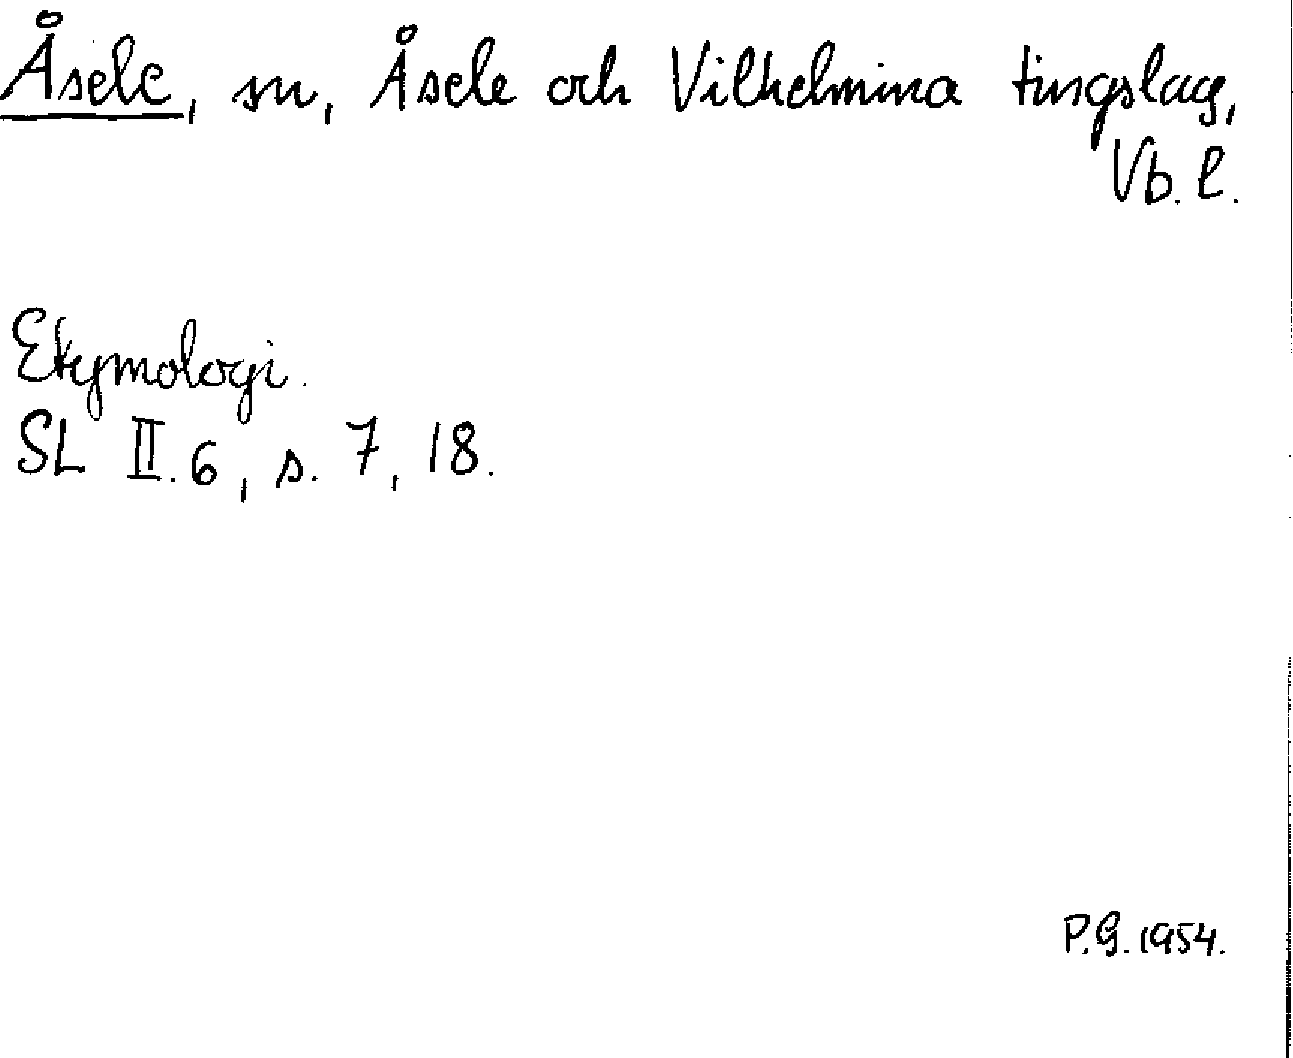 Åsele, sn, Åsele och Vilhelmina tingslag,
Vb. l.
Etymologi.
SL II.6, s. 7, 18.
P.G. 1954.